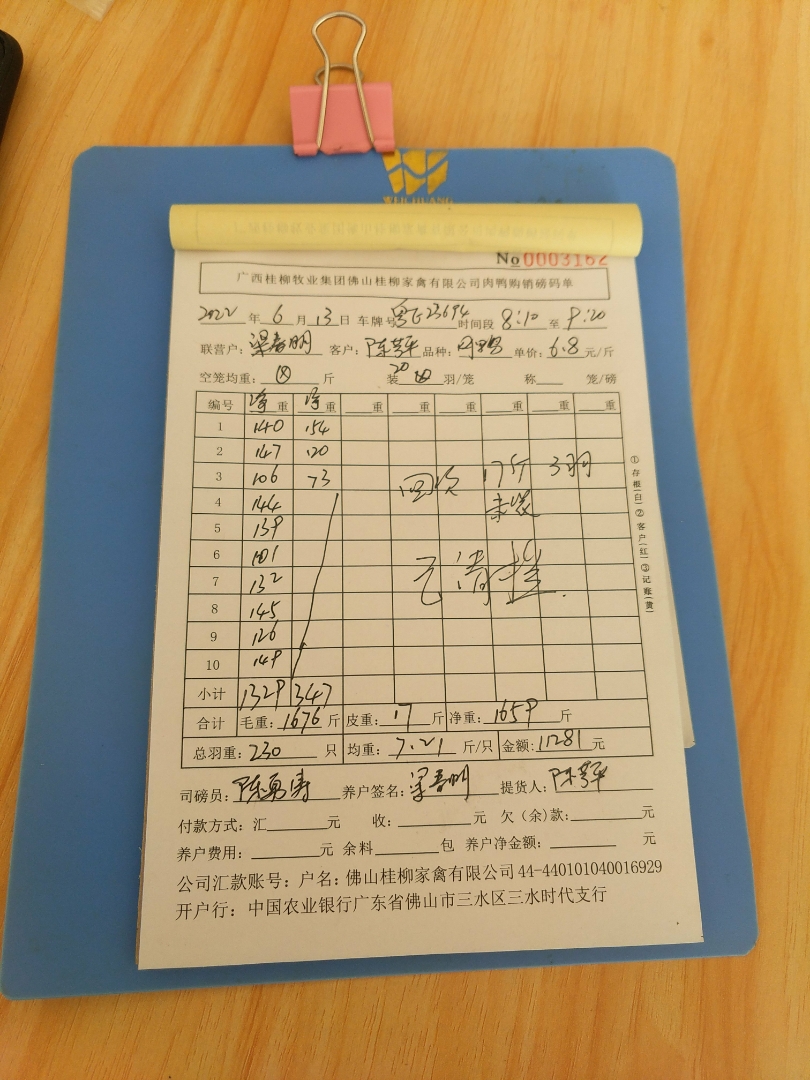 No 0003162
广西桂柳牧业集团佛山桂柳家禽有限公司肉鸭购销磅码单
2022 年 6 月 13 日 车牌号 粤E23694 时间段 8:10 至 9:20
联营户: 梁春明 客户: 陈芳平 品种: 肉鸭 单价: 6.8 元/斤
空笼均重: 斤 装 20 羽/笼 称 笼/磅
编号 净重 净重 重 重 重 重 重 重
1 140 154
2 147 120
3 106 73 回收 17斤 3羽
4 144
5 139
6 101 已清
7 132
8 145
9 126
10 149
小计 1329 347
合计 毛重: 1676 斤 皮重: 17 斤 净重: 1659 斤
总羽重: 230 只 均重: 7.21 斤/只 金额: 11281 元
司磅员: 陈勇寿 养户签名: 梁春明 提货人: 陈芳平
付款方式: 汇 元 收: 元 欠(余)款: 元
养户费用: 元 余料 包 养户净金额: 元
公司汇款账号: 户名: 佛山桂柳家禽有限公司 44-440101040016929
开户行: 中国农业银行广东省佛山市三水区三水时代支行
①存根(白)②客户(红)③记账(黄)